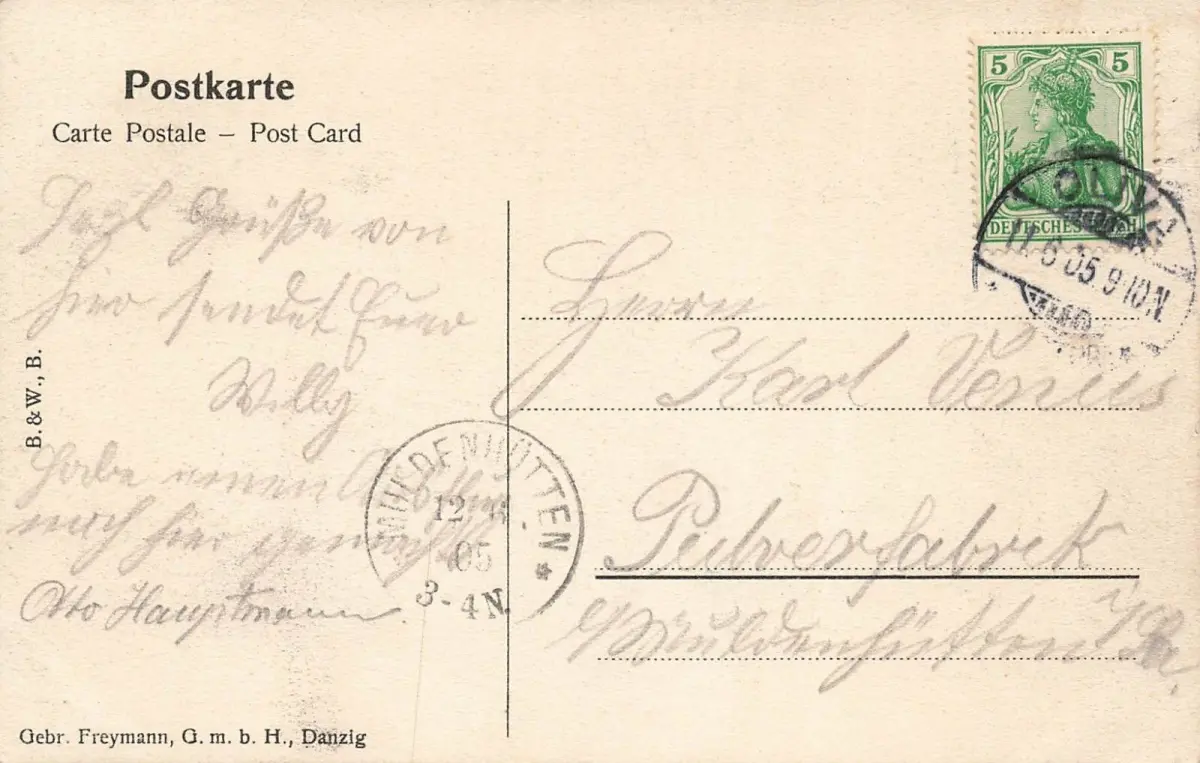 Postkarte
Carte Postale – Post Card
5 5
DEUTSCHES REICH
OLIVA
11.6.05. 9-10N.
Herzl Grüße von
hier sendet Euer
Willy
Habe einen
noch hier gemacht
Otto Hauptmann.
Herrn
Karl Venus
Pulverfabrik
b/Muldenhütten i/Sa.
MULDENHÜTTEN
12 6.
05
3-4N.
B. & W., B.
Gebr. Freymann, G. m. b. H., Danzig